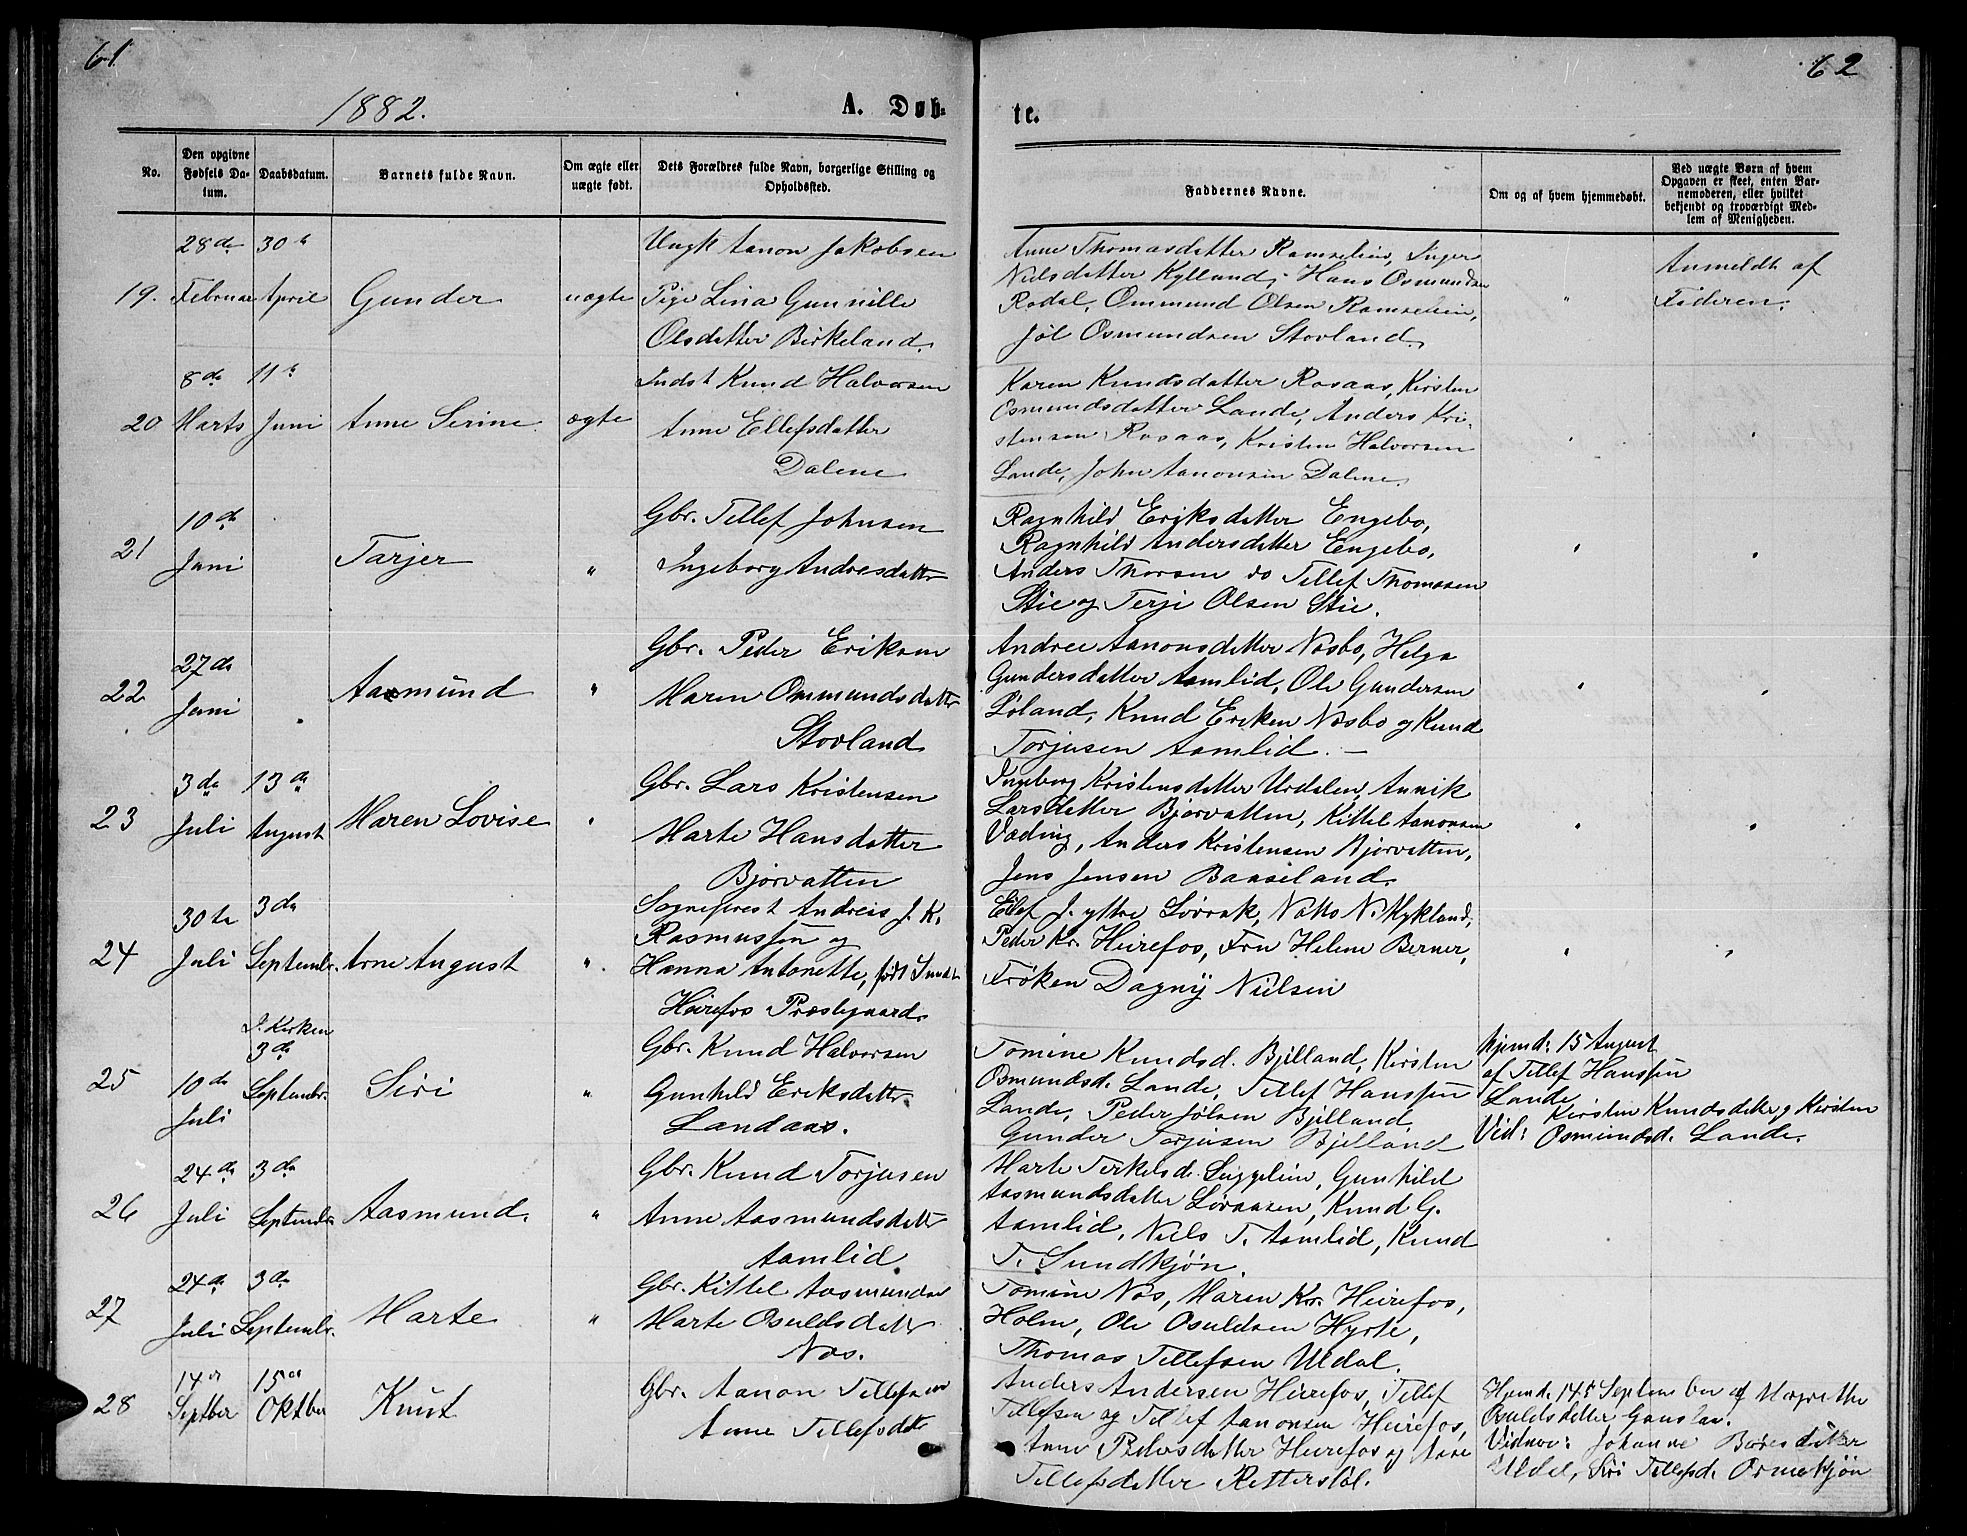 61
62
1882.
A. Døb-
te.
No.
Den opgivne Fødsels Da-tum.
Daabsdatum.
Barnets fulde Navn.
Om ægte eller uægte født.
Dets Forældres fulde Navn, borgerlige Stilling og Opholdssted.
Faddernes Navne.
Om og af hvem hjemmedøbt.
Ved uægte Børn af hvem Opgaven er skeet, enten Bar-nemoderen, eller hvilket bekjendt og troværdigt Med-lem af Menigheden.
28de Februar
30te April
19. Gunder
uægte
Ungk Aanon Jakobsen
Pige Lina Gunnille
Olsdatter Birkeland.
Anne Thomasdatter Ramselien, Inger
Nielsdatter Kylland, Hans Osmundsen
Rodal, Ommund Olsen Ramselien,
Jøl Osmundsen Stovland.
"
Anmeldt af
Faderen.
8de Marts
11te Juni
20 Anne Serine
ægte
Indst Knud Halvorsen
Anne Ellefsdatter
Dalene
Karen Knudsdatter Rosaas, Kirsten
Osmundsdatter Lande, Anders Kri-
stensen Rosaas, Kristen Halvorsen
Lande, John Aanonsen Dalene.
10de Juni
21 Tarjer
"
Gbr. Tellef Johnsen
Ingeborg Andresdatter
Ragnhild Eriksdatter Engebo,
Ragnhild Andersdatter Engebo,
Anders Thorsen do Tellef Thomasen
Stie og Terje Olsen Stie.
27de Juni
22 Aasmund
"
Gbr. Peder Eriksen
Maren Ommundsdatter
Stovland
Andree Aanonsdatter Næsbo, Helga
Gundersdatter Aamlid, Ole Gundersen
Løland, Knud Eriksen Næsbo og Knud
Torjusen Aamlid. —
3de Juli
13de August
23 Maren Lovise
"
Gbr. Lars Kristensen
Marte Hansdatter
Bjorvatten
Ingeborg Kristensdatter Urdalen, Annik
Larsdatter Bjorvatten, Kittel Aanonsen
Væding, Anders Kristensen Bjorvatten,
Jens Jensen Baaseland.
30te Juli
3de Septembr.
24 Arne August
"
Sogneprest Andreas J. K.
Rasmussen og
Hanna Antonette, født Smidt
Heirefos Præstegaard.
Ellef J. yttre Lövrak, Nælls N. Kykland,
Peder Kr. Heirefos, Fru Helene Berner,
Frøken Dagny Nielsen
10de Juli
I. Kirken 3de Septembr.
25 Siri
"
Gbr. Knud Halvorsen
Gunhild Eriksdatter
Landaas.
Tomine Knudsd. Bjelland, Kirsten
Osmundsd. Lande, Tellef Hanssen
Lande, Peder Jølsen Bjelland,
Gunder Torjusen Bjelland
Hjemd: 15 August
af Tellef Hanssen
Lande
Vid: Kirsten Knudsdatter og Kirsten
Osmundsd. Lande.
24de Juli
3de Septembr
26 Aasmund.
"
Gbr. Knud Torjusen
Anne Aasmundsdatter
Aamlid
Marte Terkelsd. Seggelien, Gunhild
Aasmundsdatter Løvaasen, Knud G.
Aamlid, Niels T. Aamlid, Knud
T. Sundtjøn.
24de Juli
3de Septembr.
27 Marte
"
Gbr. Kittel Aasmundsen
Marte Osuldsdatter
Næs.
Tomine Næs, Maren Kr. Heirefos,
Holm, Ole Osuldsen Hyrte,
Thomas Tellefsen Uldal.
14de Septber
15de Oktber
28 Knut
Gbr. Aanon Tellefsen
Anne Tellefsdtr
Anders Andersen Heirefos, Tellef
Tellefsen og Tellef Aanonsen Heirefos,
Anne Pedersdatter Heirefos og Aase
Tellefsdatter Rettersløl.
Hjemd. 14de September af Margrethe
Osuldsdatter
Vidner: Johanne
Uldal, Siri Tellefsd. Ormekjøn